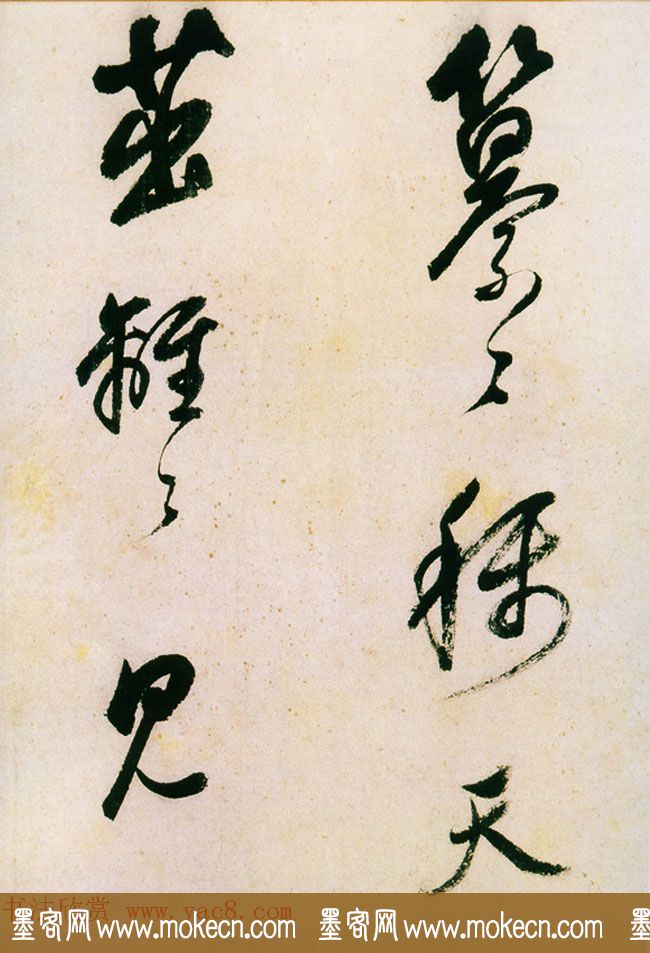 纂々稱天
茁離々見
书法欣赏 www.yac8.com
墨客网 www.mokecn.com 墨客网 www.mokecn.com